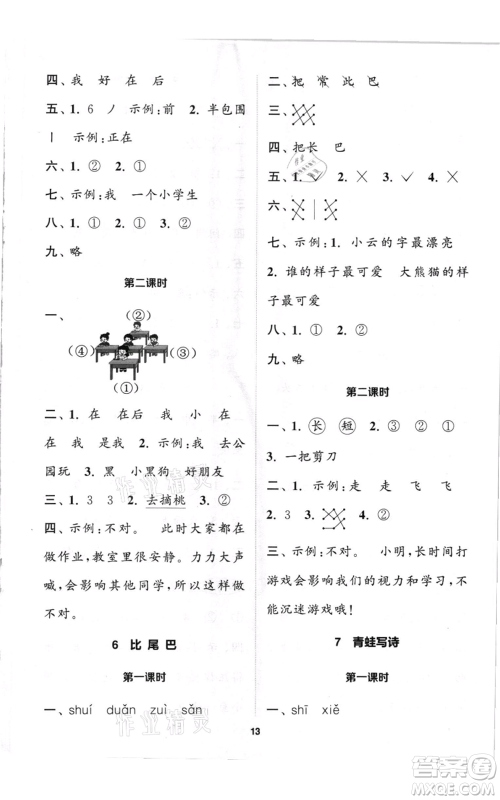 四、我 好 在 后
五、1. 6 丿 示例：前 2. 半包围
丨 示例：正在
六、1. ② 2. ①
七、示例：我 一个小学生
八、1. ① 2. ① 3. ②
九、略
第二课时
一、
（②）
（④）
（③）
（①）
二、1. 在 在 后 我 小 在
我 是 我 2. 示例：我 去公
园玩 3. 黑 小黑狗 好朋友
三、1. 3 3 2. 去摘桃 3. ②
四、示例：不对。 此时大家都在
做作业，教室里很安静。力力大声
喊，会影响其他同学，所以这样做
不对。
6 比尾巴
第一课时
一、shuí duǎn zuì sǎn
二、把 常 此 巴
三、
四、把 长 巴
五、1. ✓ 2. ✕ 3. ✓ 4. ✕
六、
七、示例：1. 小云的字最漂亮
2. 谁的样子最可爱 大熊猫的样
子最可爱
八、1. ① 2. ① 3. ②
九、略
第二课时
一、1. 长 短 2. ① ② ②
3. 一把剪刀
二、1. 示例：走 走 飞 飞
2. 3
3.
三、示例：不对。 小明，长时间打
游戏会影响我们的视力和学习，不
能沉迷游戏哦！
7 青蛙写诗
第一课时
一、shī xiě
13
作业精灵
作业精灵